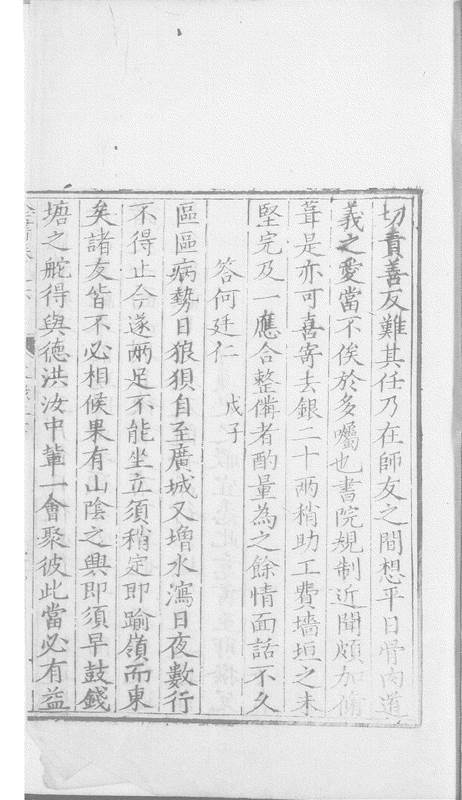 切責善反難其任乃在師友之間想平日骨肉道
義之愛當不俟於多囑也書院規制近聞頗加脩
葺是亦可喜寄去銀二十兩稍助工費墻垣之未
堅完及一應合整備者酌量為之餘情面話不久
答何廷仁 戊子
區區病勢日狼狽自至廣城又增水瀉日夜數行
不得止今遂兩足不能坐立須稍定即踰嶺而東
矣諸友皆不必相候果有山陰之興即須早鼓錢
塘之舵得與德洪汝中輩一會聚彼此當必有益